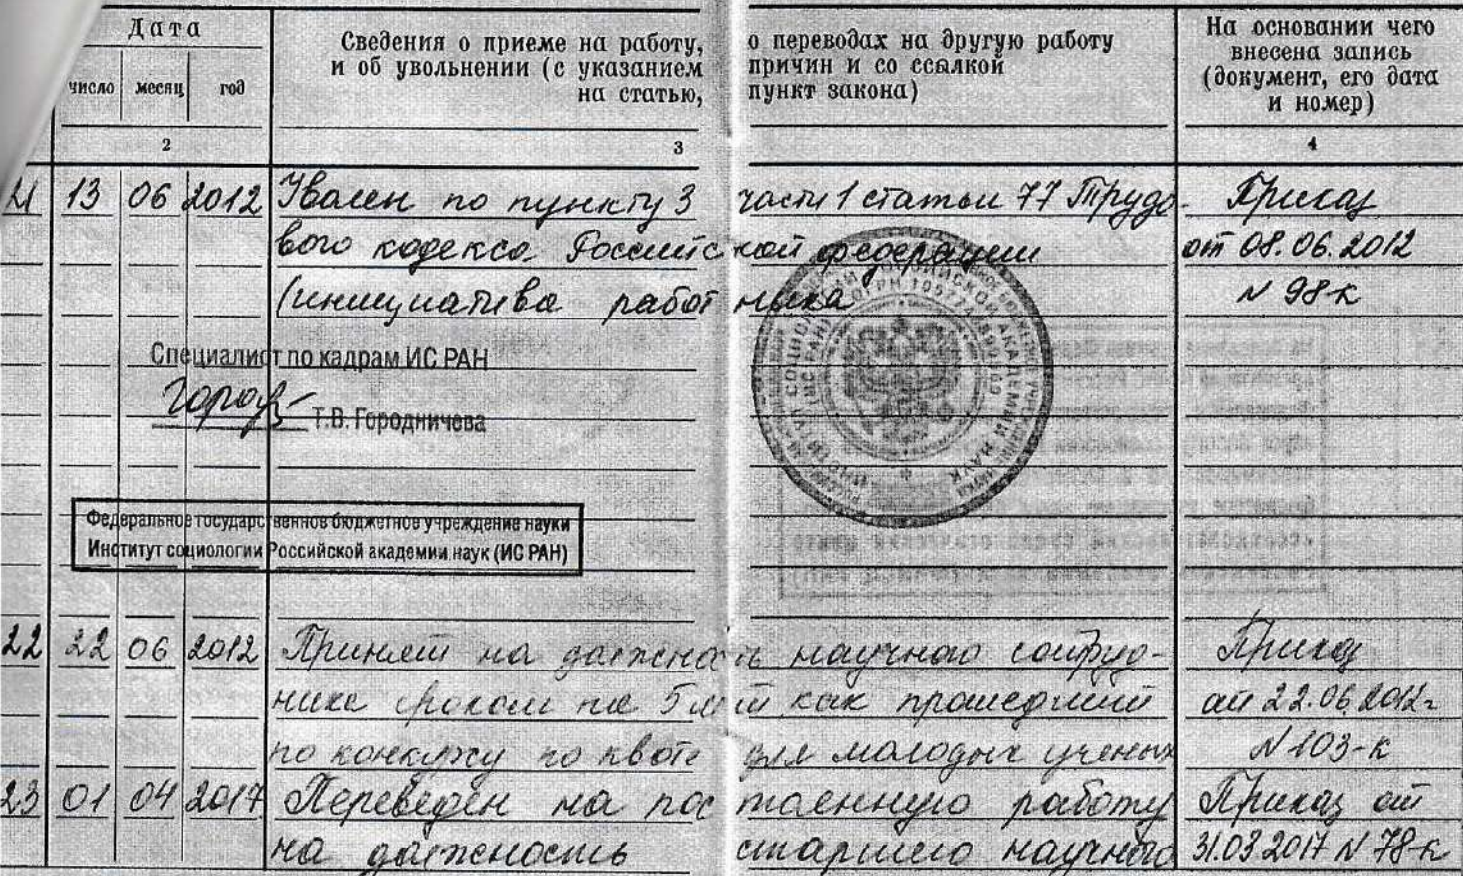 Дата
Сведения о приеме на работу, о переводах на другую работу
и об увольнении (с указанием причин и со ссылкой
на статью, пункт закона)
На основании чего
внесена запись
(документ, его дата
и номер)
число месяц год
2 3 4
21 13 06 2012 Уволен по пункту 3 части 1 статьи 77 Трудо- Приказ
вого кодекса Российской федерации от 08.06.2012
(инициатива работника N 98-к
Специалист по кадрам ИС РАН
Т.В. Городничева
Федеральное государственное бюджетное учреждение науки
Институт социологии Российской академии наук (ИС РАН)
22 22 06 2012 Принят на должность научного сотруд- Приказ
ника сроком на 5 лет как прошедший от 22.06.2012г
по конкурсу по квоте для молодых ученых N 103-к
23 01 04 2017 Переведен на постоенную работу Приказ от
на должность старшего научного 31.03.2017 N 78-к